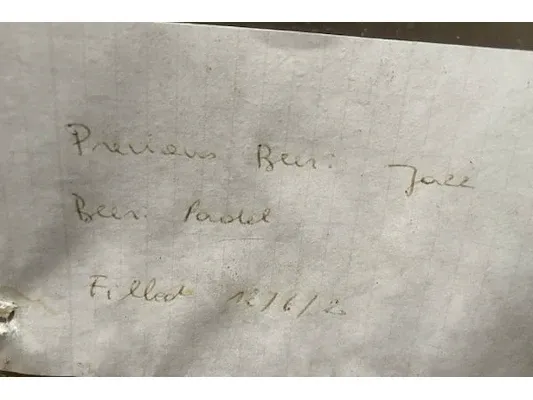 Previous Beer: Jazz
Beer: Padel
Filled 12/6/2